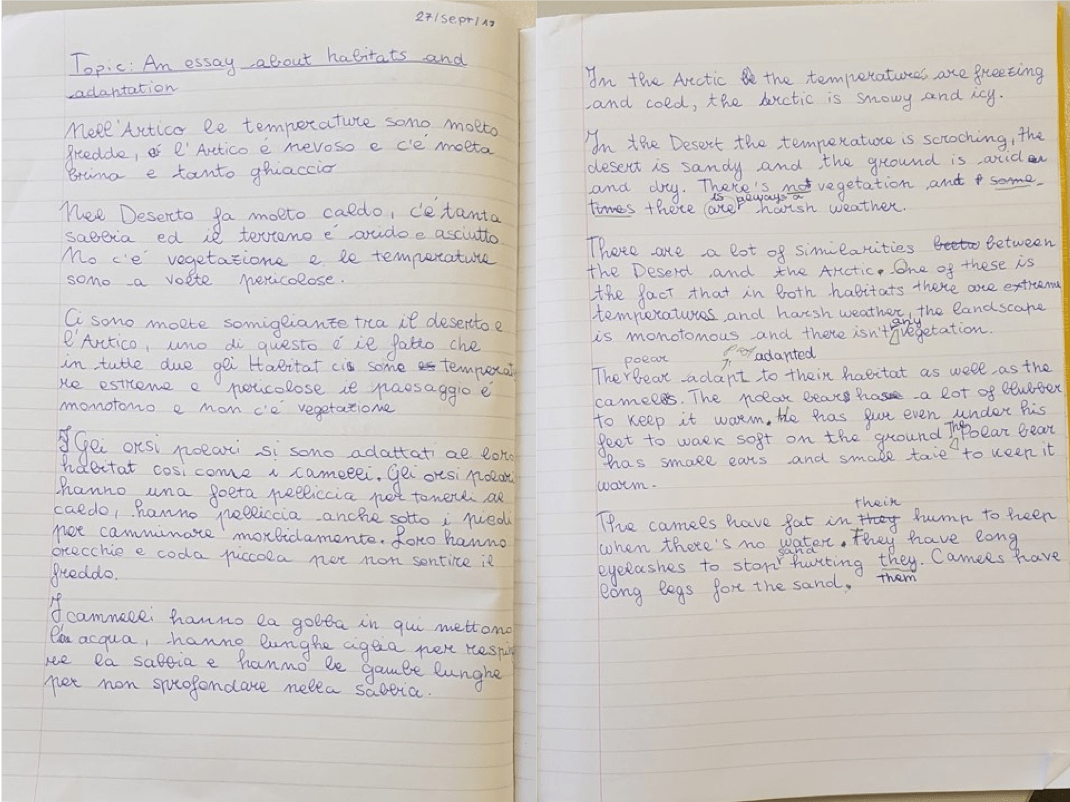 27/Sept/17
Topic: An essay about habitats and
adaptation
Nell'Artico le temperature sono molto
fredde, l'Artico é nevoso e c'é molta
brina e tanto ghiaccio
Nel Deserto fa molto caldo, c'é tanta
sabbia ed il terreno é arido e asciutto
No c'é vegetazione e le temperature
sono a volte pericolose.
Ci sono molte somiglianze tra il deserto e
l'Artico, uno di questo é il fatto che
in tutte due gli Habitat ci sono temperat
re estreme e pericolose il paesaggio é
monotono e non c'é vegetazione
Gli orsi polari si sono adattati al loro
habitat cosi come i camelli. Gli orsi polari
hanno una folta pelliccia per tenerli al
caldo, hanno pelliccia anche sotto i piedi
per camminare morbidamente. Loro hanno
orecchie e coda piccola per non sentire il
freddo.
I cammelli hanno la gobba in qui mettono
acqua, hanno lunghe ciglia per respin
re la sabbia e hanno le gambe lunghe
per non sprofondare nella sabbia.
In the Arctic the temperatures are freezing
and cold, the Arctic is snowy and icy.
In the Desert the temperature is scroching, the
desert is sandy and the ground is arid
and dry. There's not vegetation and some-
is always a
times there are harsh weather.
There are a lot of similarities between
the Deserd and the Arctic. One of these is
the fact that in both habitats there are extreme
temperatures and harsh weather, the landscape
any
is monotonous and there isn't vegetation.
polar adapted
The bear adapt to their habitat as well as the
camels. The polar bear has a lot of blubber
to keep it warm. He has fur even under his
feet to walk soft on the ground The Polar bear
has small ears and small tail to keep it
warm.
their
The camels have fat in they hump to help
when there's no water. They have long
sand
eyelashes to stop hurting they. Camels have
them
long legs for the sand.